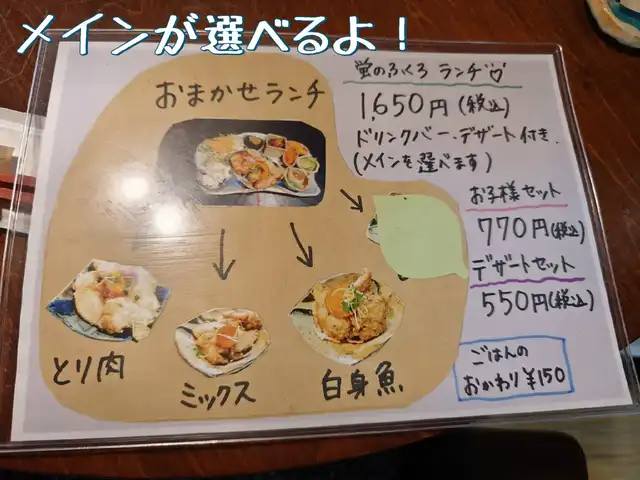 メインが選べるよ！
おまかせランチ
とり肉
ミックス
白身魚
蛍のふくろ ランチ♡
1,650円(税込)
ドリンクバー、デザート付き.
(メインを選べます)
お子様セット
770円(税込)
デザートセット
550円(税込)
ごはんの
おかわり¥150